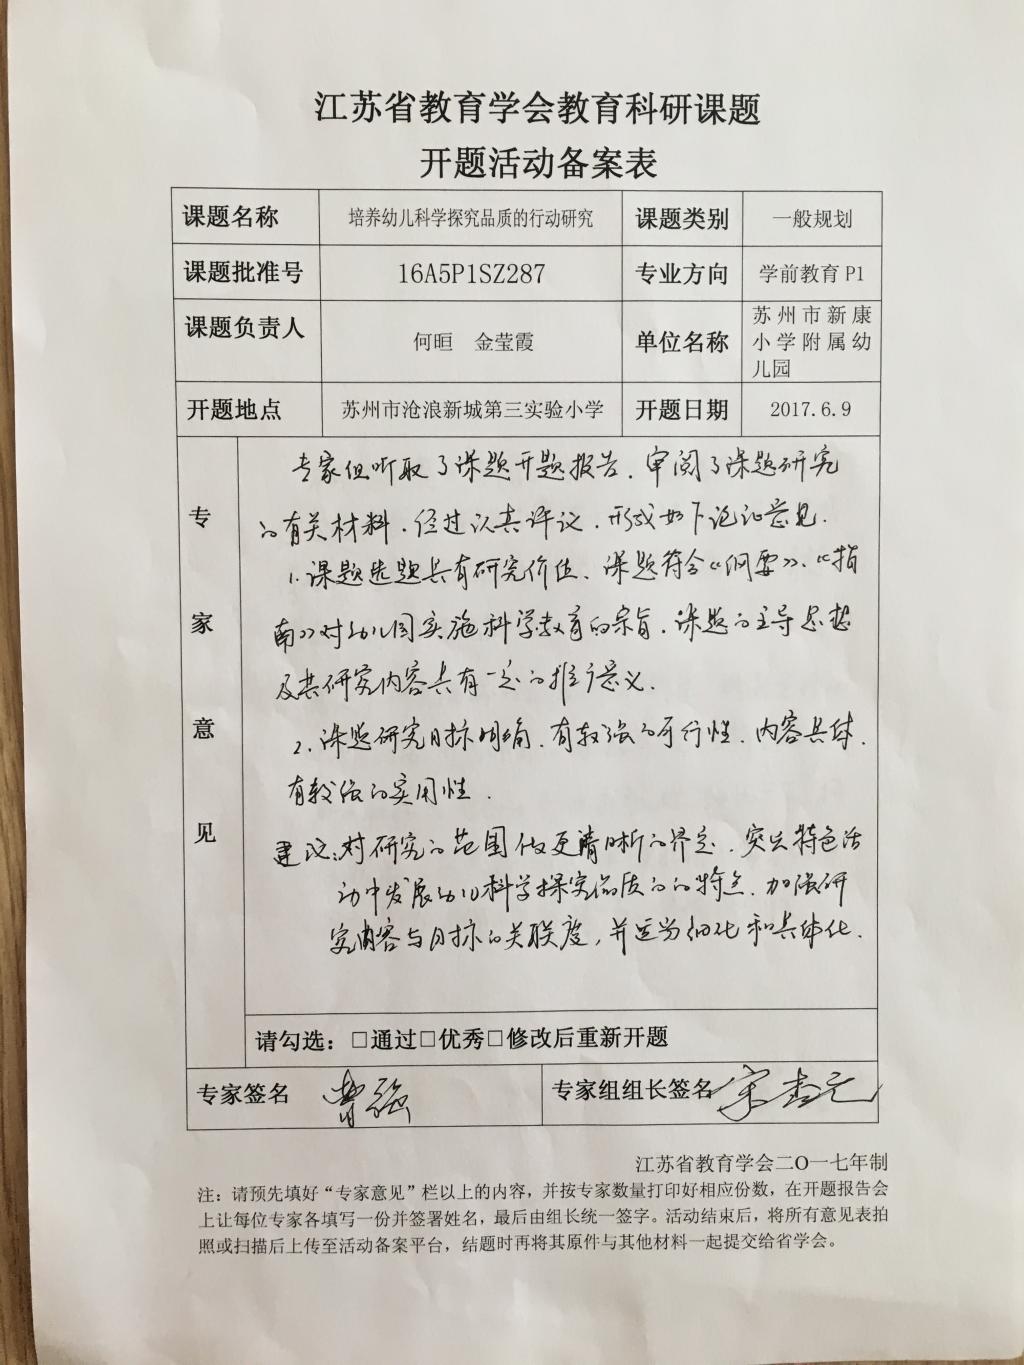 江苏省教育学会教育科研课题
开题活动备案表
课题名称 培养幼儿科学探究品质的行动研究 课题类别 一般规划
课题批准号 16A5P1SZ287 专业方向 学前教育 P1
课题负责人 何晅 金莹霞 单位名称 苏州市新康
小学附属幼
儿园
开题地点 苏州市沧浪新城第三实验小学 开题日期 2017.6.9
专家意见
专家组听取了课题开题报告、审阅了课题研究
的有关材料，经过认真评议，形成如下论证意见.
1. 课题选题具有研究价值、课题符合《纲要》、《指
南》对幼儿园实施科学教育的宗旨，课题的主导思想
及其研究内容具有一定的推广意义.
2. 课题研究目标明确、有较强的可行性、内容具体、
有较强的实用性.
建议：对研究的范围做更清晰的界定、突出特色活
动中发展幼儿科学探究品质的的特点、加强研
究内容与目标的关联度，并适当细化和具体化.
请勾选：□通过□优秀□修改后重新开题
专家签名 曹强 专家组组长签名 宋
江苏省教育学会二O一七年制
注：请预先填好“专家意见”栏以上的内容，并按专家数量打印好相应份数，在开题报告会
上让每位专家各填写一份并签署姓名，最后由组长统一签字。活动结束后，将所有意见表拍
照或扫描后上传至活动备案平台，结题时再将其原件与其他材料一起提交给省学会。